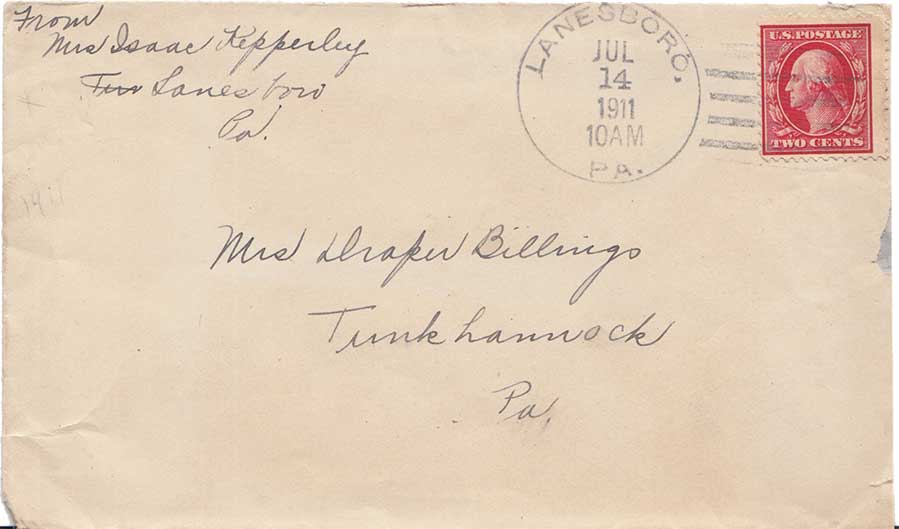 From
Mrs Isaac Kepperley
Tun Lanesboro
Pa.
LANESBORO,
JUL
14
1911
10AM
PA.
U.S. POSTAGE
TWO CENTS
1911
Mrs Draper Billings
Tunkhannock
Pa.